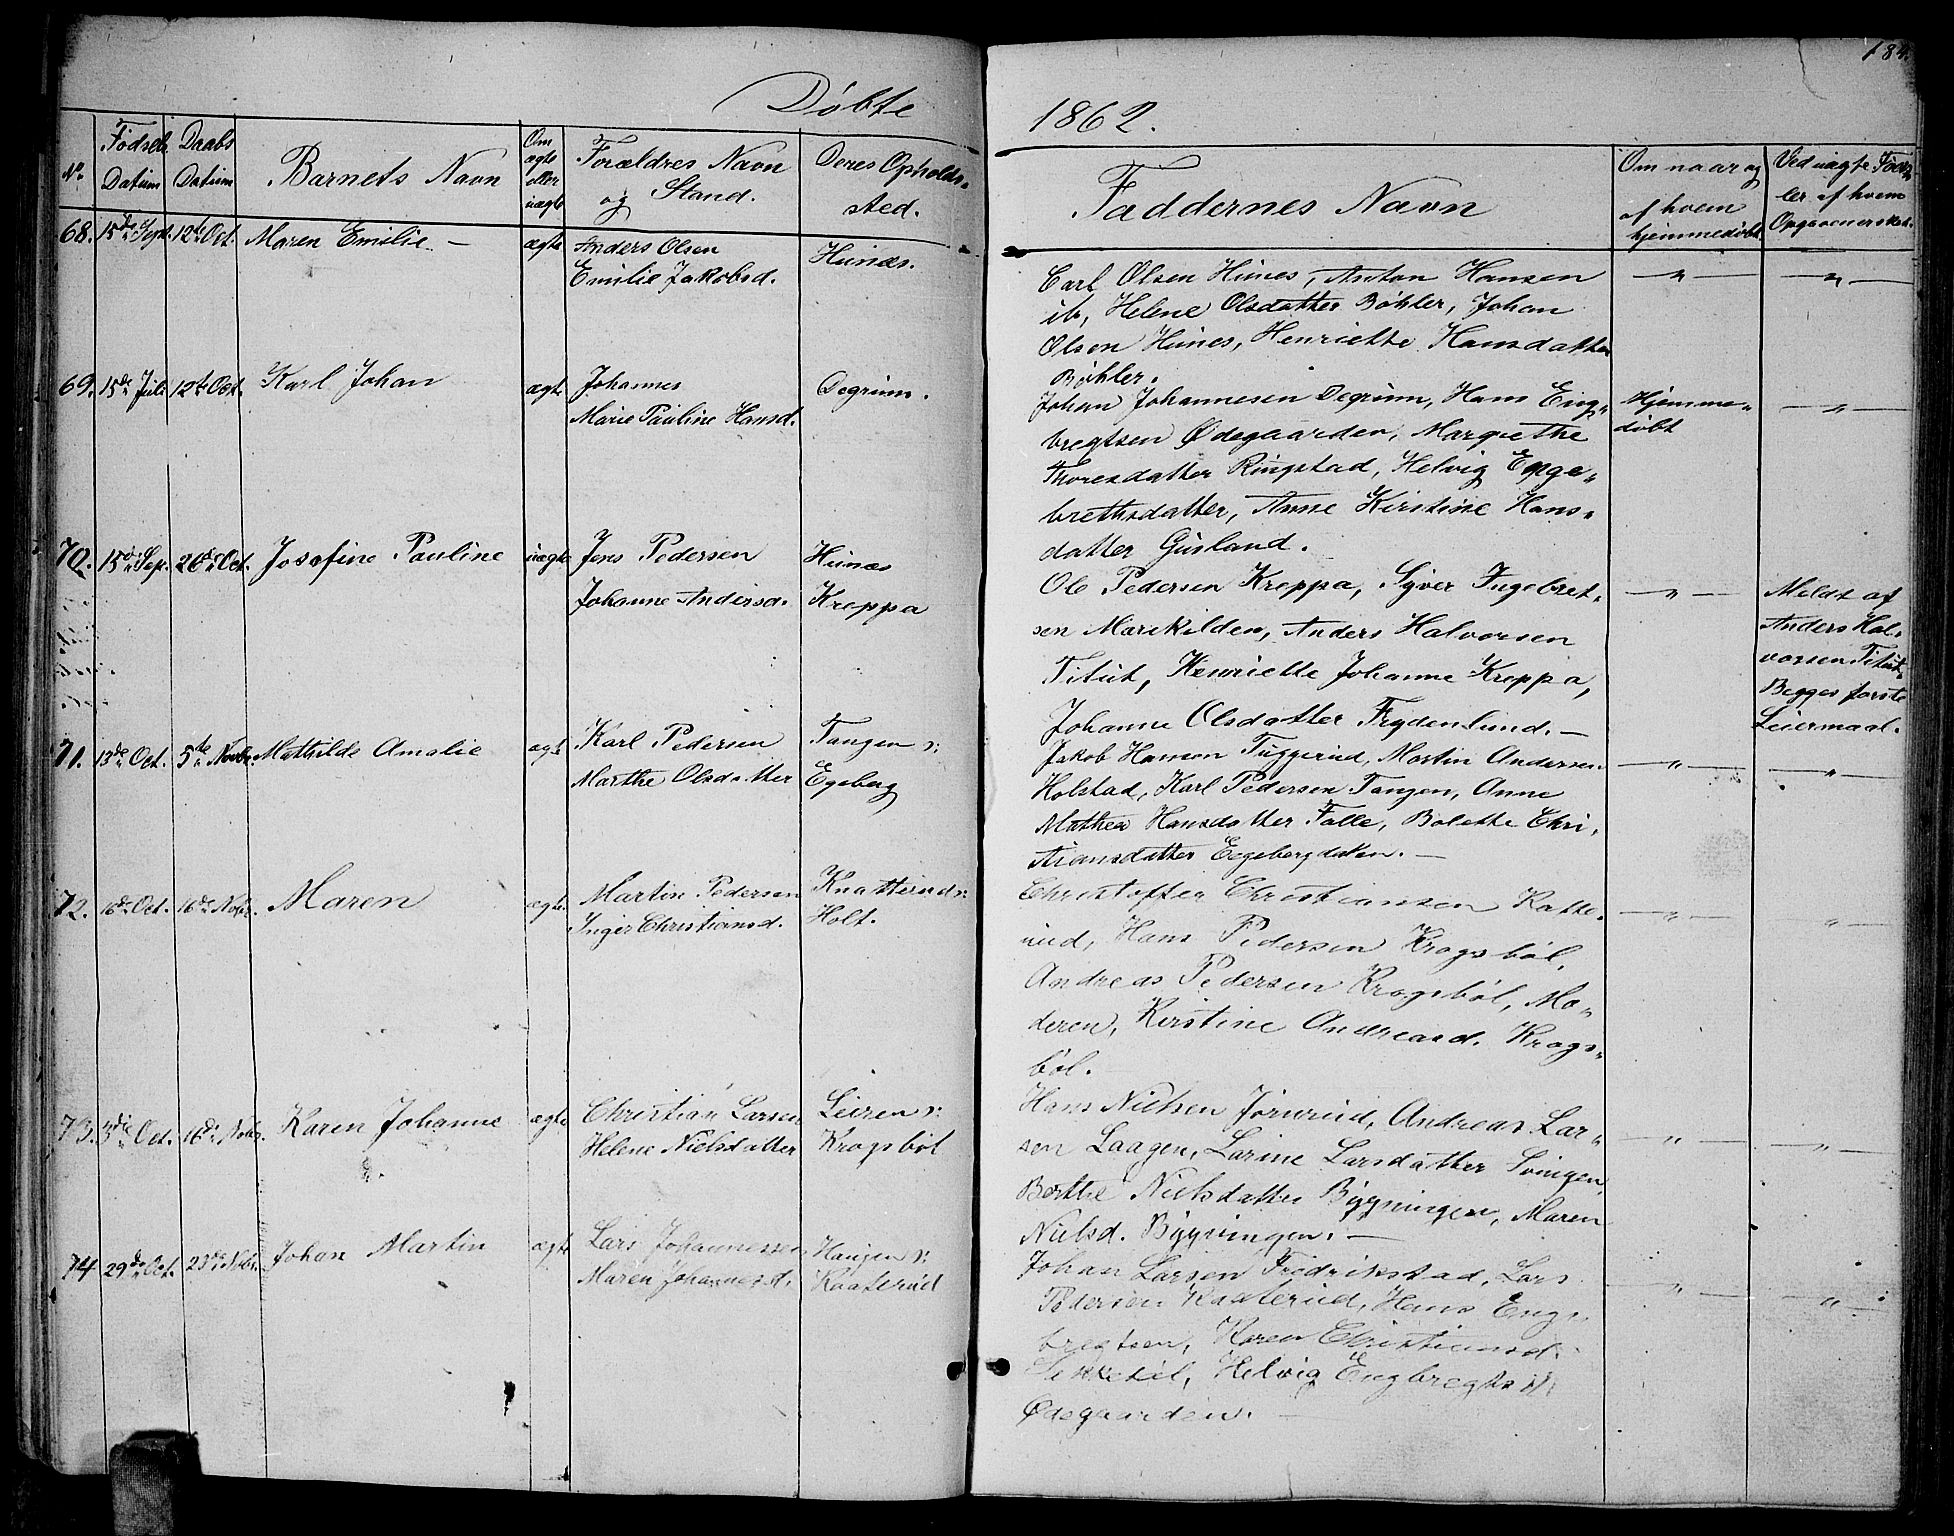 Døbte
1862.
184.
No. Fødsels Datum Daabs Datum Barnets Navn Om ægte eller uægte Forældres Navn og Stand. Deres Opholds-sted. Faddernes Navn Om naar og af hvem hjemmedøbt. Ved uægte Foræl-ler af hvem Opgaven er skeet.
68. 15de Sept. 12te Oct. Maren Emilie. — ægte Anders Olsen Hunæs.
Emilie Jakobsd.
Carl Olsen Hunes, Anton Hansen — " — — " —
ib, Helene Olsdatter Bøhler, Johan
Olsen Hunes, Henriette Hansdatter
Bøhler.
69. 15de Juli 12te Oct. Karl Johan ægte Johannes Degrum.
Marie Pauline Hansd.
Johan Johannesen Degrum, Hans Eng- Hjemme- — " —
bregtsen Ødegaarden, Margrethe døbt
Thoresdatter Ringstad, Helvig Enge-
brethsdatter, Anne Kirstine Hans-
datter Gusland.
70. 15de Sep. 26de Oct. Josefine Pauline uægte Jens Pedersen Hunæs
Johanne Andersd. Kreppa
Ole Pedersen Kreppa, Syver Ingebret- — " — Meldt af
sen Marikilden, Anders Halvorsen Anders Hal-
Titut, Henriette Johanne Kreppa, vorsen Titut.
Johanne Olsdatter Frydenlund. — Begges første
Leiermaal.
71. 13de Oct. 5te Novbr. Mathilde Amalie ægte Karl Pedersen Tangen s:
Marthe Olsdatter Egeberg
Jakob Hanson Tuggerud, Martin Andersen — " — — " —
Holstad, Karl Pedersen Tangen, Anne
Mathea Hansdatter Falle, Bolette Chri-
stiansdatter Eegeberg —
72. 16de Oct. 16de Nobr. Maren ægte Martin Pedersen Knatterud s:
Inger Christiansd. Holt.
Christoffer Christiansen Katte- — " — " —
rud, Hans Pedersen Krogsbøl,
Andreas Pedersen Krogsbøl, Mo-
deren, Kirstine Andreasd. Krogs-
bøl.
73. 3die Oct. 16de Nobr. Karen Johanne ægte Christian Larsen Leiren s:
Helene Nielsdatter Krogsbøl
Hans Nielsen Jørnrud, Andreas Lar- — " — — " —
sen Laagen, Larine Larsdatter Svingen,
Berthe Nielsdatter Bygningen, Maren
Nielsd. Bygningen. —
74 29de Oct. 23de Nobr. Johan Martin ægte Lars Johannessen Haugen s:
Maren Johannesd. Kaaterud
Johan Larsen Fredrikstad, Lars — " — — " —
Pedersen Kaaterud, Hans Eng-
bregtsen, Karen Christiansd.
Helvig Engbregtsd.
Ødegaarden. —